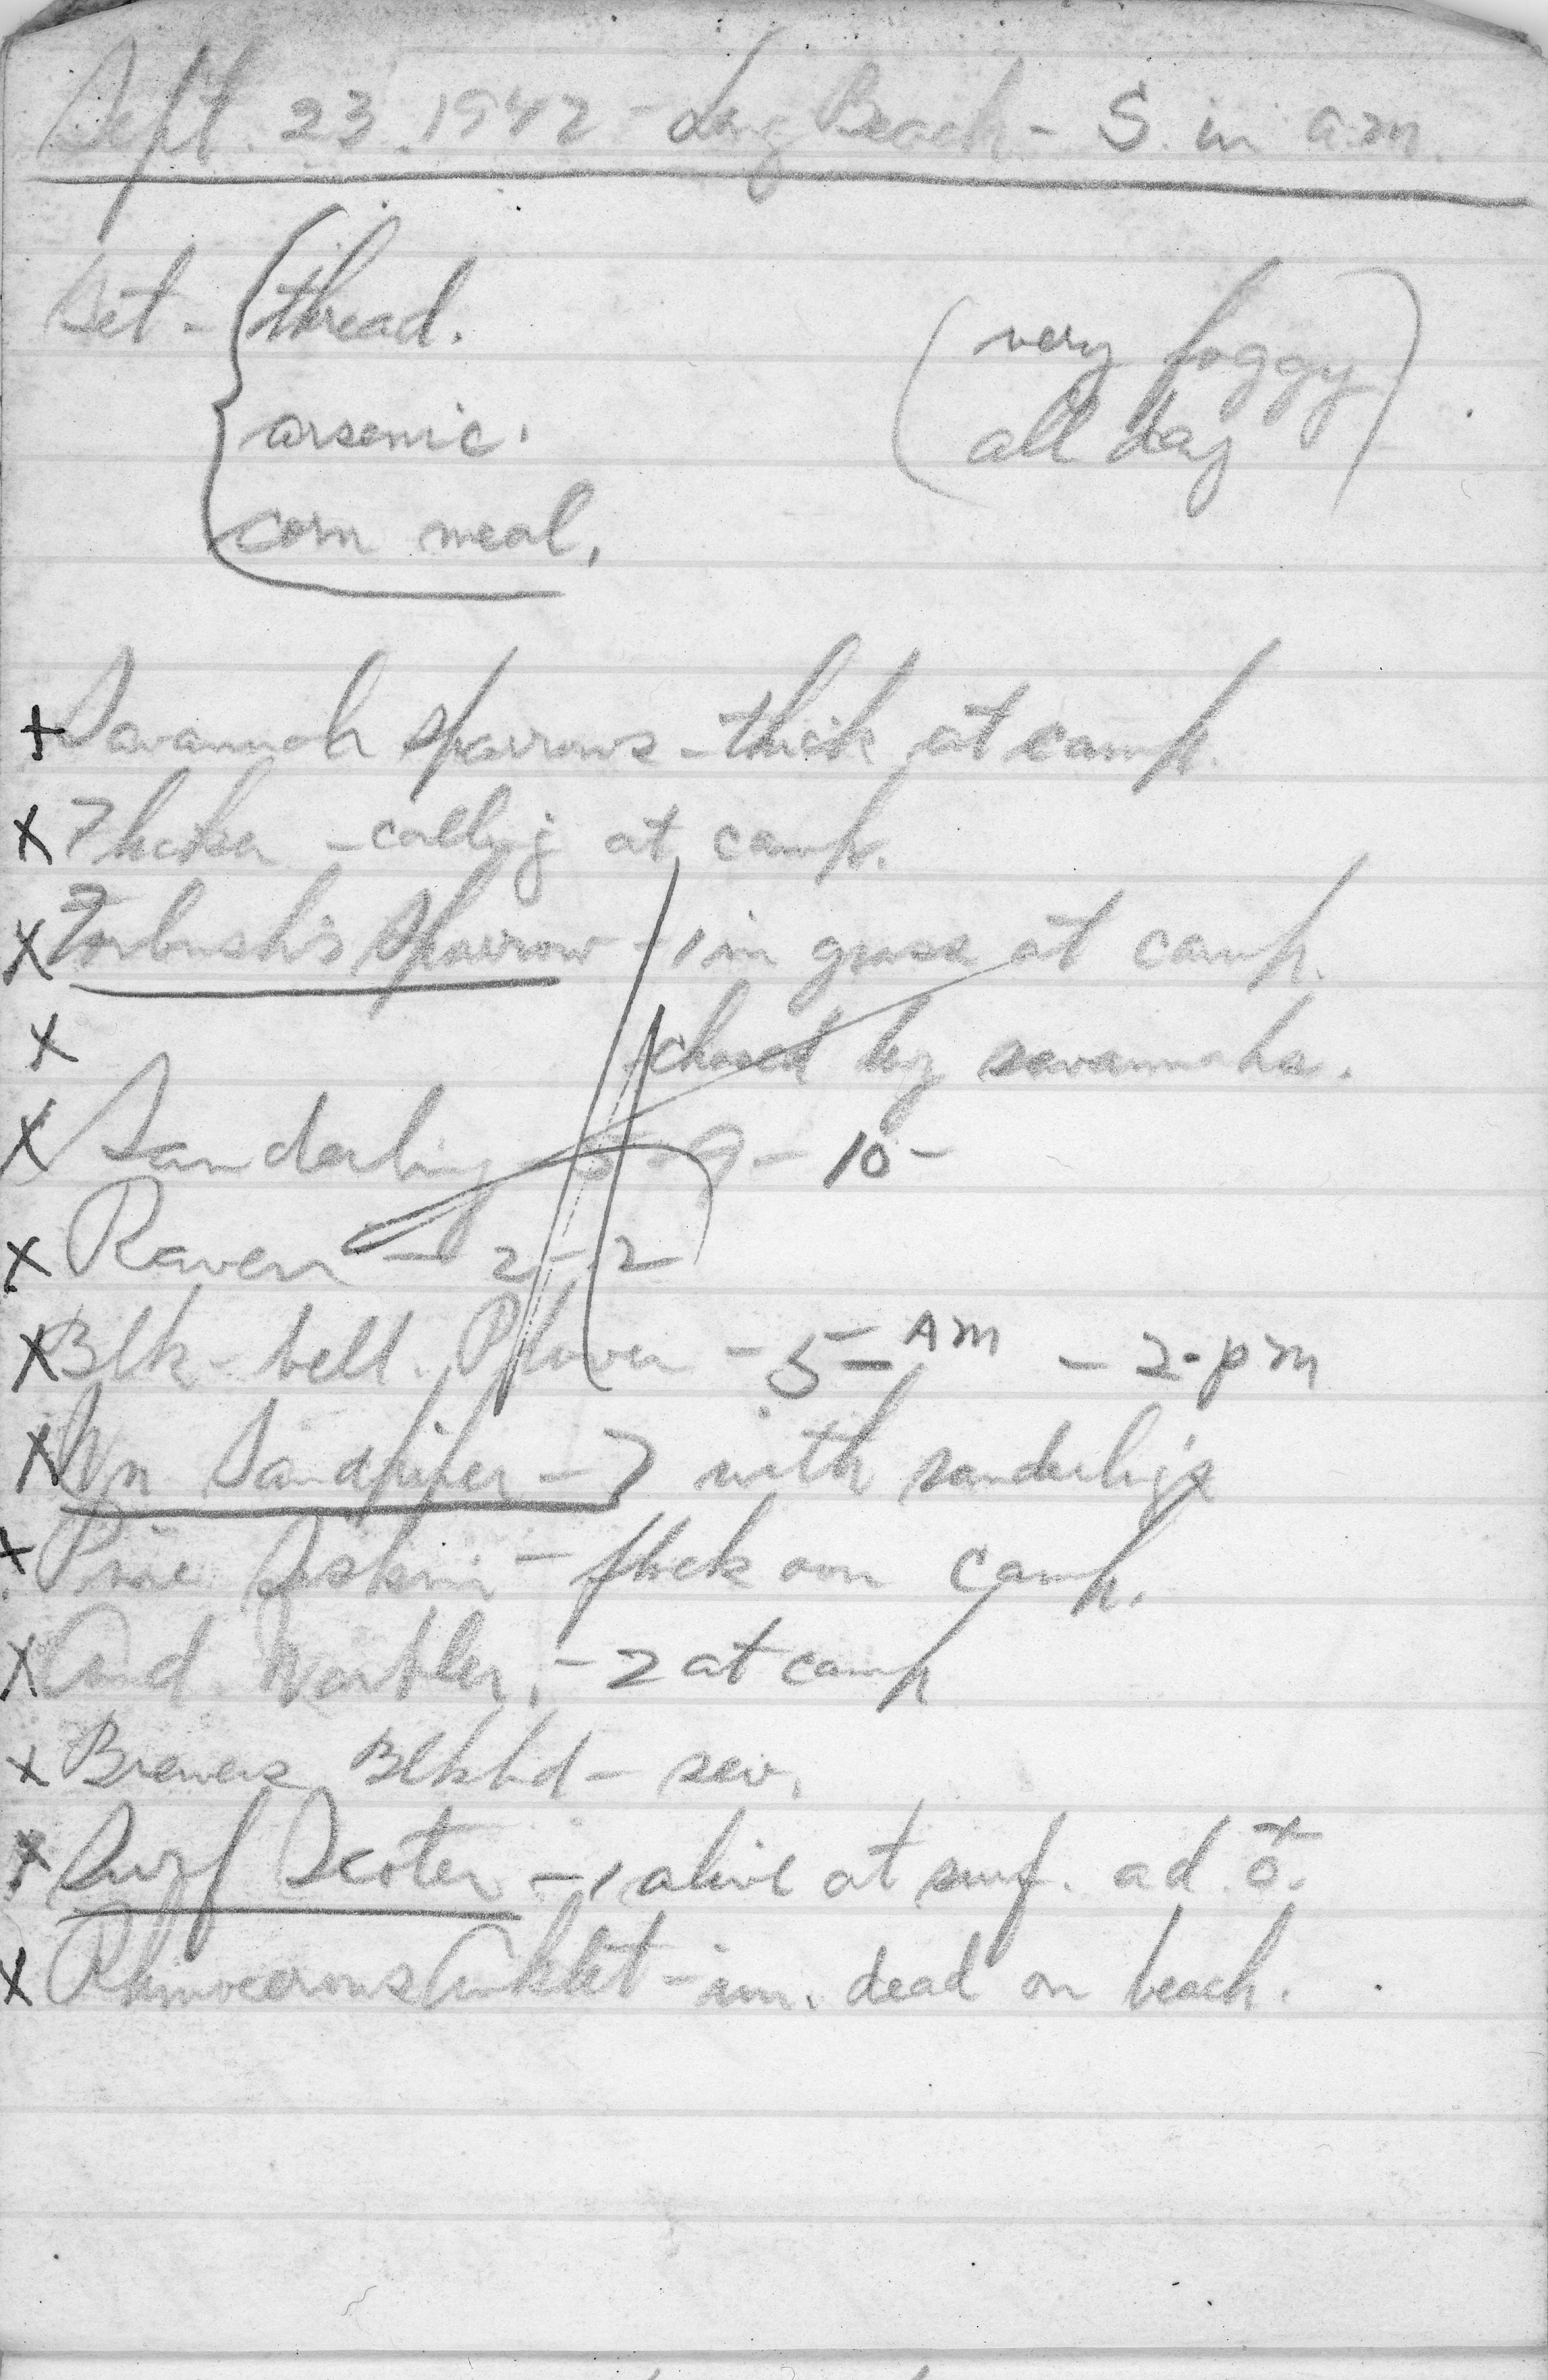 Sept. 23. 1942 - Long Beach - S. in a.m.
Get - { thread.
(very foggy
arsenic.
all day)
corn meal.
+ Savannah Sparrows - thick at camp.
X Flicker - calling at camp.
X Forbush's Sparrow - 1 in grass at camp.
X
- chased by savannahs.
X Sanderling 5 - 9 - 10 -
X Raven - 2 - 2
X Blk-bell. Plover - 5 - AM - 2 - pm
X Wn Sandpiper - 7 with sanderlings
X Pine Siskin - flock over camp.
X Aud. Warbler. - 2 at camp
X Brewers Blkbd - sev.
X Surf Scoter - 1 alive at surf. ad ♂.
X Rhinocerous Auklet - imm. dead on beach.